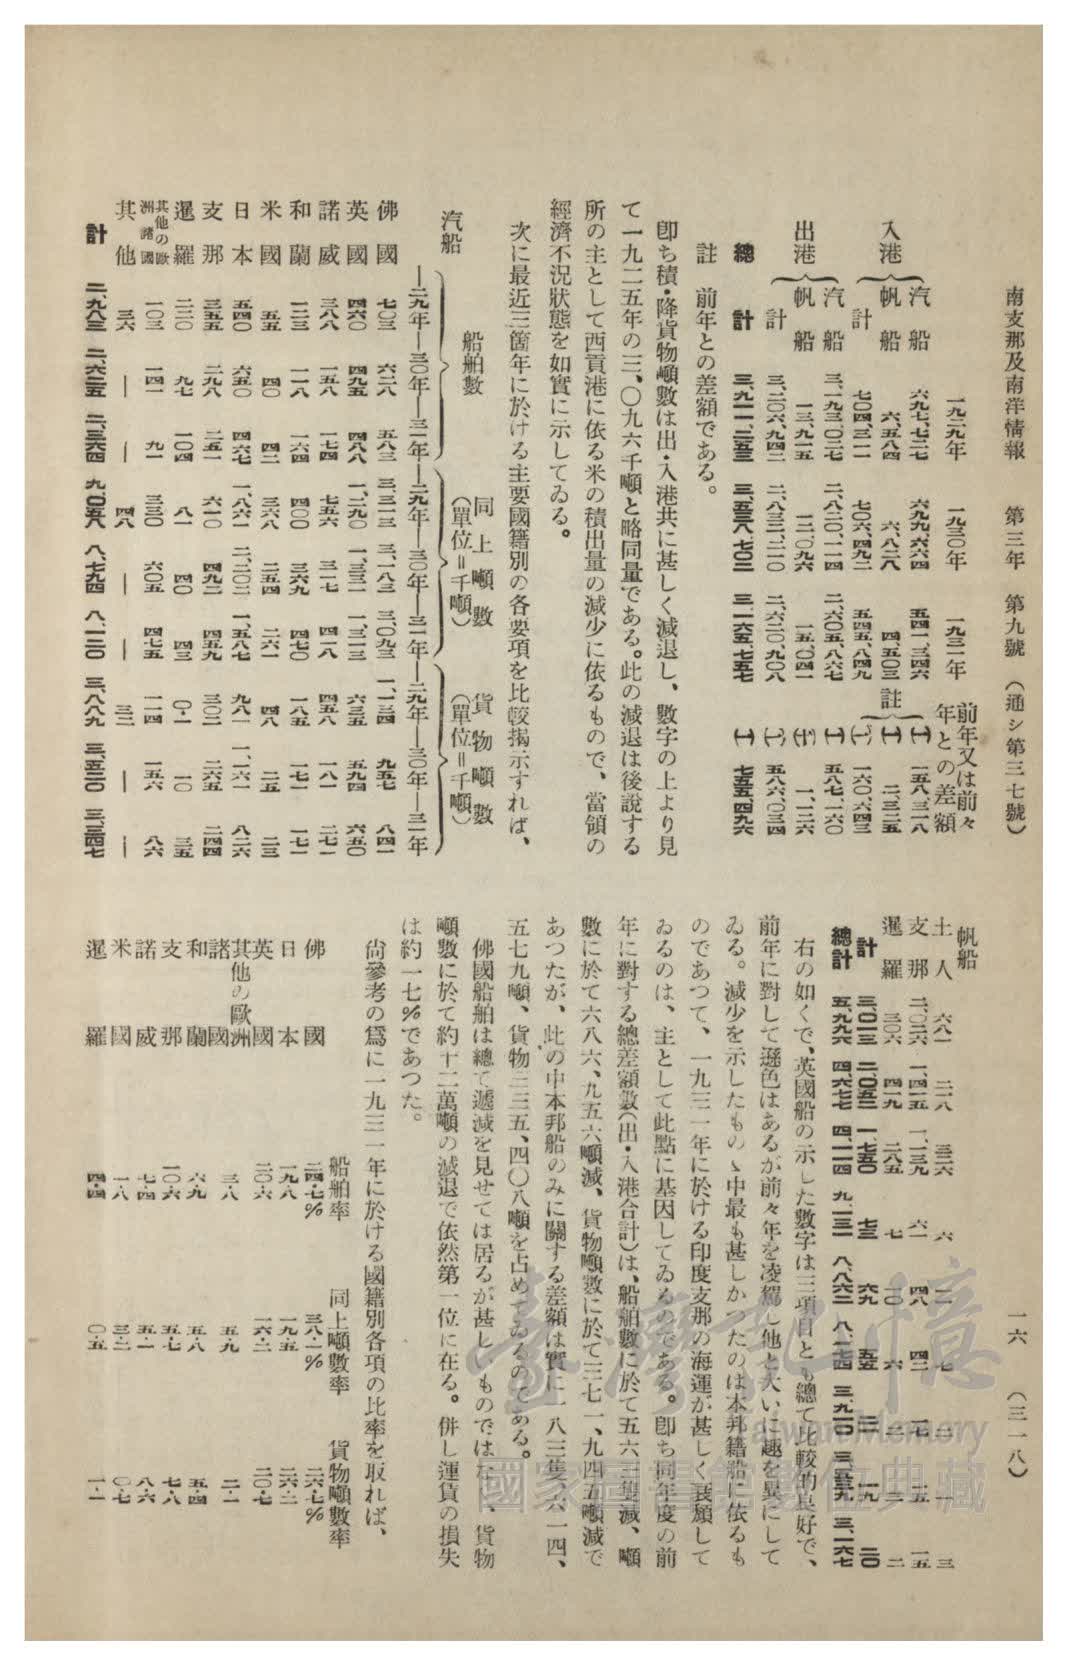 南支那及南洋情報　第三年　第九號　（通シ第三七號）　一六　（三一八）
一九二九年　一九三〇年　一九三一年　前年又は前々年との差額
入港
汽船　六九七、七二七　六九九、六六四　五四一、三四六　註（－）一五八、三一八
帆船　六、五八四　六、八二八　四、五〇三　（－）二、三二五
計　七〇四、三一一　七〇六、四九二　五四五、八四九　（－）一六〇、六四三
出港
汽船　三、一九三、〇二七　二、八二〇、一一四　二、六〇五、八六七　（－）五八七、一六〇
帆船　一三、九一五　一二、〇九六　一五、〇四一　（＋）一、一二六
計　三、二〇六、九四二　二、八三二、二一〇　二、六二〇、九〇八　（－）五八六、〇三四
總計　三、九一一、二五三　三、五三八、七〇二　三、一六五、七五七　（－）七五五、四九六
註　前年との差額である。
卽ち積・降貨物噸數は出・入港共に甚しく減退し、數字の上より見
て一九二五年の三、〇九六千噸と略同量である。此の減退は後說する
所の主として西貢港に依る米の積出量の減少に依るもので、當領の
經濟不況狀態を如實に示してゐる。
次に最近三箇年に於ける主要國籍別の各要項を比較揭示すれば、
汽船　船舶數　同上噸數（單位＝千噸）　貨物噸數（單位＝千噸）
一二九年　一三〇年　一三一年　一二九年　一三〇年　一三一年　一二九年　一三〇年　一三一年
佛國　七〇三　六二八　五八三　三、三一三　三、一八三　三、〇九三　一、一三四　九五七　八四一
英國　四六〇　四九五　四八八　一、二九〇　一、三三一　一、三一三　六三五　五九四　六五〇
諾威　三八八　一五八　一七四　七五六　三一七　四一八　四五八　一八一　二七一
和蘭　一二三　一一八　一六四　四〇〇　三六九　四七〇　一八五　一七一　一七一
米國　五五　四〇　四二　三六八　二五四　二六一　四八　二五　二三
日本　五四〇　六五〇　四六七　一、八六一　二、二〇二　一、五八七　九八一　一、一六一　八二六
支那　三五五　二九八　二五一　六一〇　四九二　四五九　三〇二　二六五　二四四
暹羅　二二〇　九七　一〇四　八一　四〇　四三　〇・一　一〇　三五
其他の歐洲諸國　一〇三　一四一　九一　三三〇　六〇五　四七五　一一四　一五六　八六
其他　三六　―　―　四八　―　―　三二　―　―
計　二、九八三　二、六二五　二、三六四　九、〇五八　八、七九四　八、一二〇　三、八八九　三、五二〇　三、三四七
帆船
土人　六八一　二一八　三二六　六　一一　七　二　一　三
支那　二、〇二六　一、四一五　一、一三九　六一　四八　四二　一七　一五　一五
暹羅　三〇六　四一九　二八五　七　一〇　六　二　三　二
計　三、〇一三　二、〇五二　一、七五〇　七三　六九　五五　二一　一九　二〇
總計　五、九九六　四、六七七　四、一一四　九、一三一　八、八六二　八、一七四　三、九一〇　三、五三九　三、三六七
右の如くで、英國船の示した數字は三項目とも總て比較的良好で、
前年に對して遜色はあるが前々年を凌駕し他と大いに趣を異にして
ゐる。減少を示したものゝ中最も甚しかつたのは本邦籍船に依るも
のであつて、一九三一年に於ける印度支那の海運が甚しく衰頽して
ゐるのは、主として此點に基因してゐるのである。卽ち同年度の前
年に對する總差額數（出・入港合計）は、船舶數に於て五六三隻減、噸
數に於て六八六、九五六噸減、貨物噸數に於て三七一、九四五噸減で
あつたが、此の中本邦船のみに關する差額は實に一八三隻、六一四、
五七九噸、貨物三三五、四〇八噸を占めてゐるのである。
佛國船舶は總て遞減を見せては居るが甚しいものではなく、貨物
噸數に於て約十二萬噸の減退で依然第一位に在る。併し運貨の損失
は約一七％であつた。
尙參考の爲に一九三一年に於ける國籍別各項の比率を取れば、
船舶率　同上噸數率　貨物噸數率
佛國　二四・七％　三八・一％　二六・七％
日本　一九・八　一九・五　二六・二
英國　二〇・六　一六・二　二〇・七
其他の歐洲諸國　三・八　五・九　二・一
和蘭　六・九　五・八　五・四
支那　一〇・六　五・七　七・八
諾威　七・四　五・一　八・六
米國　一・八　三・二　〇・七
暹羅　四・四　〇・五　一・一
臺灣記憶
Taiwan Memory
國家圖書館數位典藏